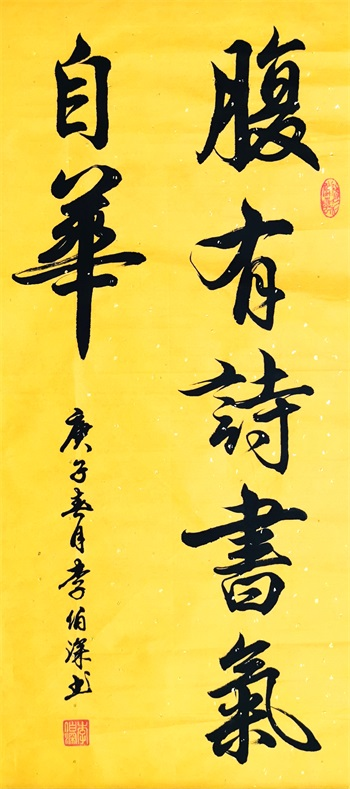 腹有詩書氣
自華
庚子春月李伯深书